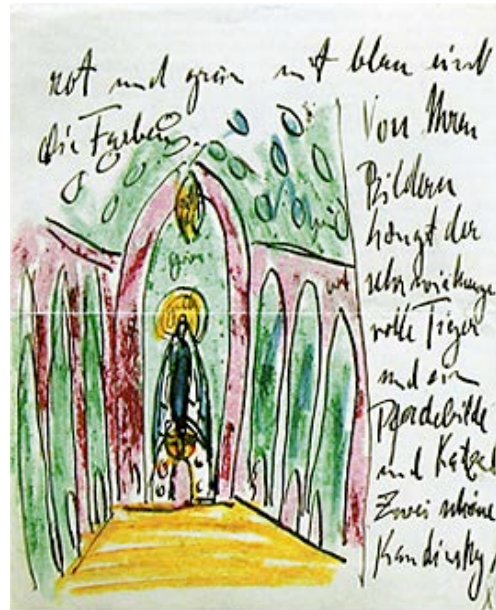 rot und grün mit blau sind
die Farben
Von Ihren
Bildern
hängt der
sehr wirkungs
volle Tiger
und ein
Pferdebilde
und Katzen
Zwei schöne
Kandinsky,
grün
rot